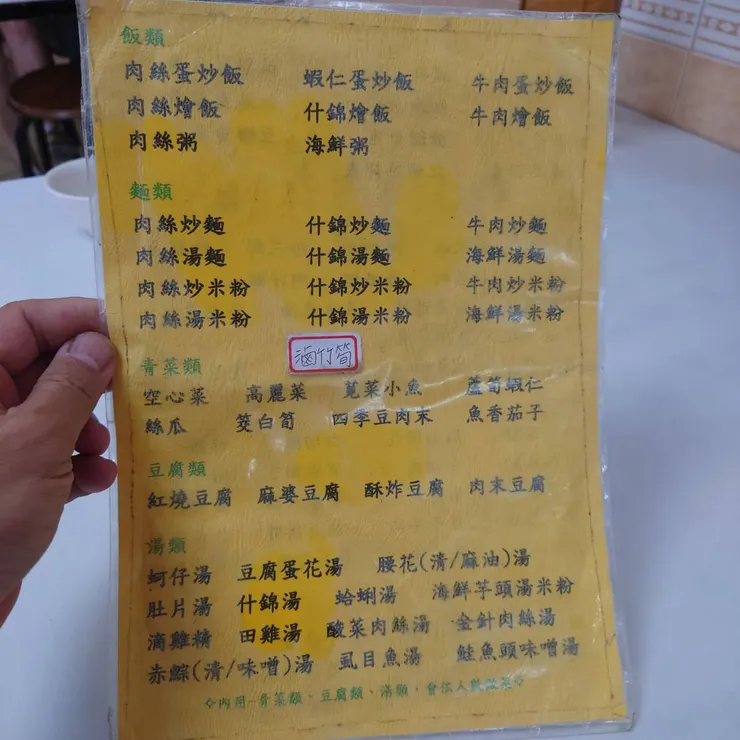 飯類
肉絲蛋炒飯 蝦仁蛋炒飯 牛肉蛋炒飯
肉絲燴飯 什錦燴飯 牛肉燴飯
肉絲粥 海鮮粥
麵類
肉絲炒麵 什錦炒麵 牛肉炒麵
肉絲湯麵 什錦湯麵 海鮮湯麵
肉絲炒米粉 什錦炒米粉 牛肉炒米粉
肉絲湯米粉 什錦湯米粉 海鮮湯米粉
滷竹筍
青菜類
空心菜 高麗菜 莧菜小魚 蘆筍蝦仁
絲瓜 筊白筍 四季豆肉末 魚香茄子
豆腐類
紅燒豆腐 麻婆豆腐 酥炸豆腐 肉末豆腐
湯類
蚵仔湯 豆腐蛋花湯 腰花(清/麻油)湯
肚片湯 什錦湯 蛤蜊湯 海鮮芋頭湯米粉
滴雞精 田雞湯 酸菜肉絲湯 金針肉絲湯
赤鯮(清/味噌)湯 虱目魚湯 鮭魚頭味噌湯
◇內用-青菜類、豆腐類、湯類，會依人數做菜◇